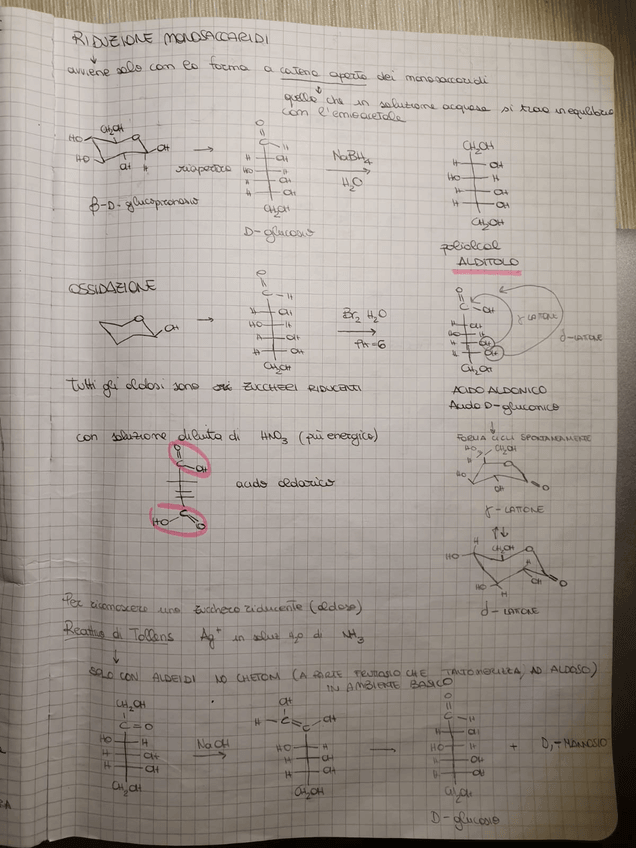 RIDUZIONE MONOSACCARIDI
avviene solo con la forma a catena aperta dei monosaccaridi
quella che in soluzione acquosa si trova in equilibrio
con l'emiacetale
CH2OH
HO
HO
O
OH
OH
H
riapertura
β-D-glucopiranosio
O
C H
H OH
HO H
H OH
H OH
CH2OH
D-glucosio
NaBH4
H2O
CH2OH
H OH
HO H
H OH
H OH
CH2OH
polialcol
ALDITOLO
OSSIDAZIONE
O
OH
O
C H
H OH
HO H
H OH
H OH
CH2OH
Br2 H2O
PH=6
O
C OH
H OH
HO H
H OH
H OH
CH2OH
γ LATONE
δ-LATONE
ACIDO ALDONICO
Acido D-gluconico
Tutti gli aldosi sono ZUCCHERI RIDUCENTI
con soluzione diluita di HNO3 (più energico)
O
C OH
HO C O
acido aldarico
FORMA CICLI SPONTANEAMENTE
HO CH2OH
H
HO
O
OH
O
γ-LATONE
HO
CH2OH
O
H
OH
O
HO
H
δ-LATONE
Per riconoscere uno zucchero riducente (aldoso)
Reattivo di Tollens Ag+ in soluz H2O di NH3
SOLO CON ALDEIDI NO CHETONI (A PARTE FRUTTOSIO CHE TAUTOMERIZZA AD ALDOSO)
IN AMBIENTE BASICO
CH2OH
C=O
HO H
H OH
H OH
CH2OH
NaOH
OH
H C=C OH
HO H
H OH
H OH
CH2OH
O
C H
H OH
HO H
H OH
H OH
CH2OH
D-glucosio
+ D-MANNOSIO